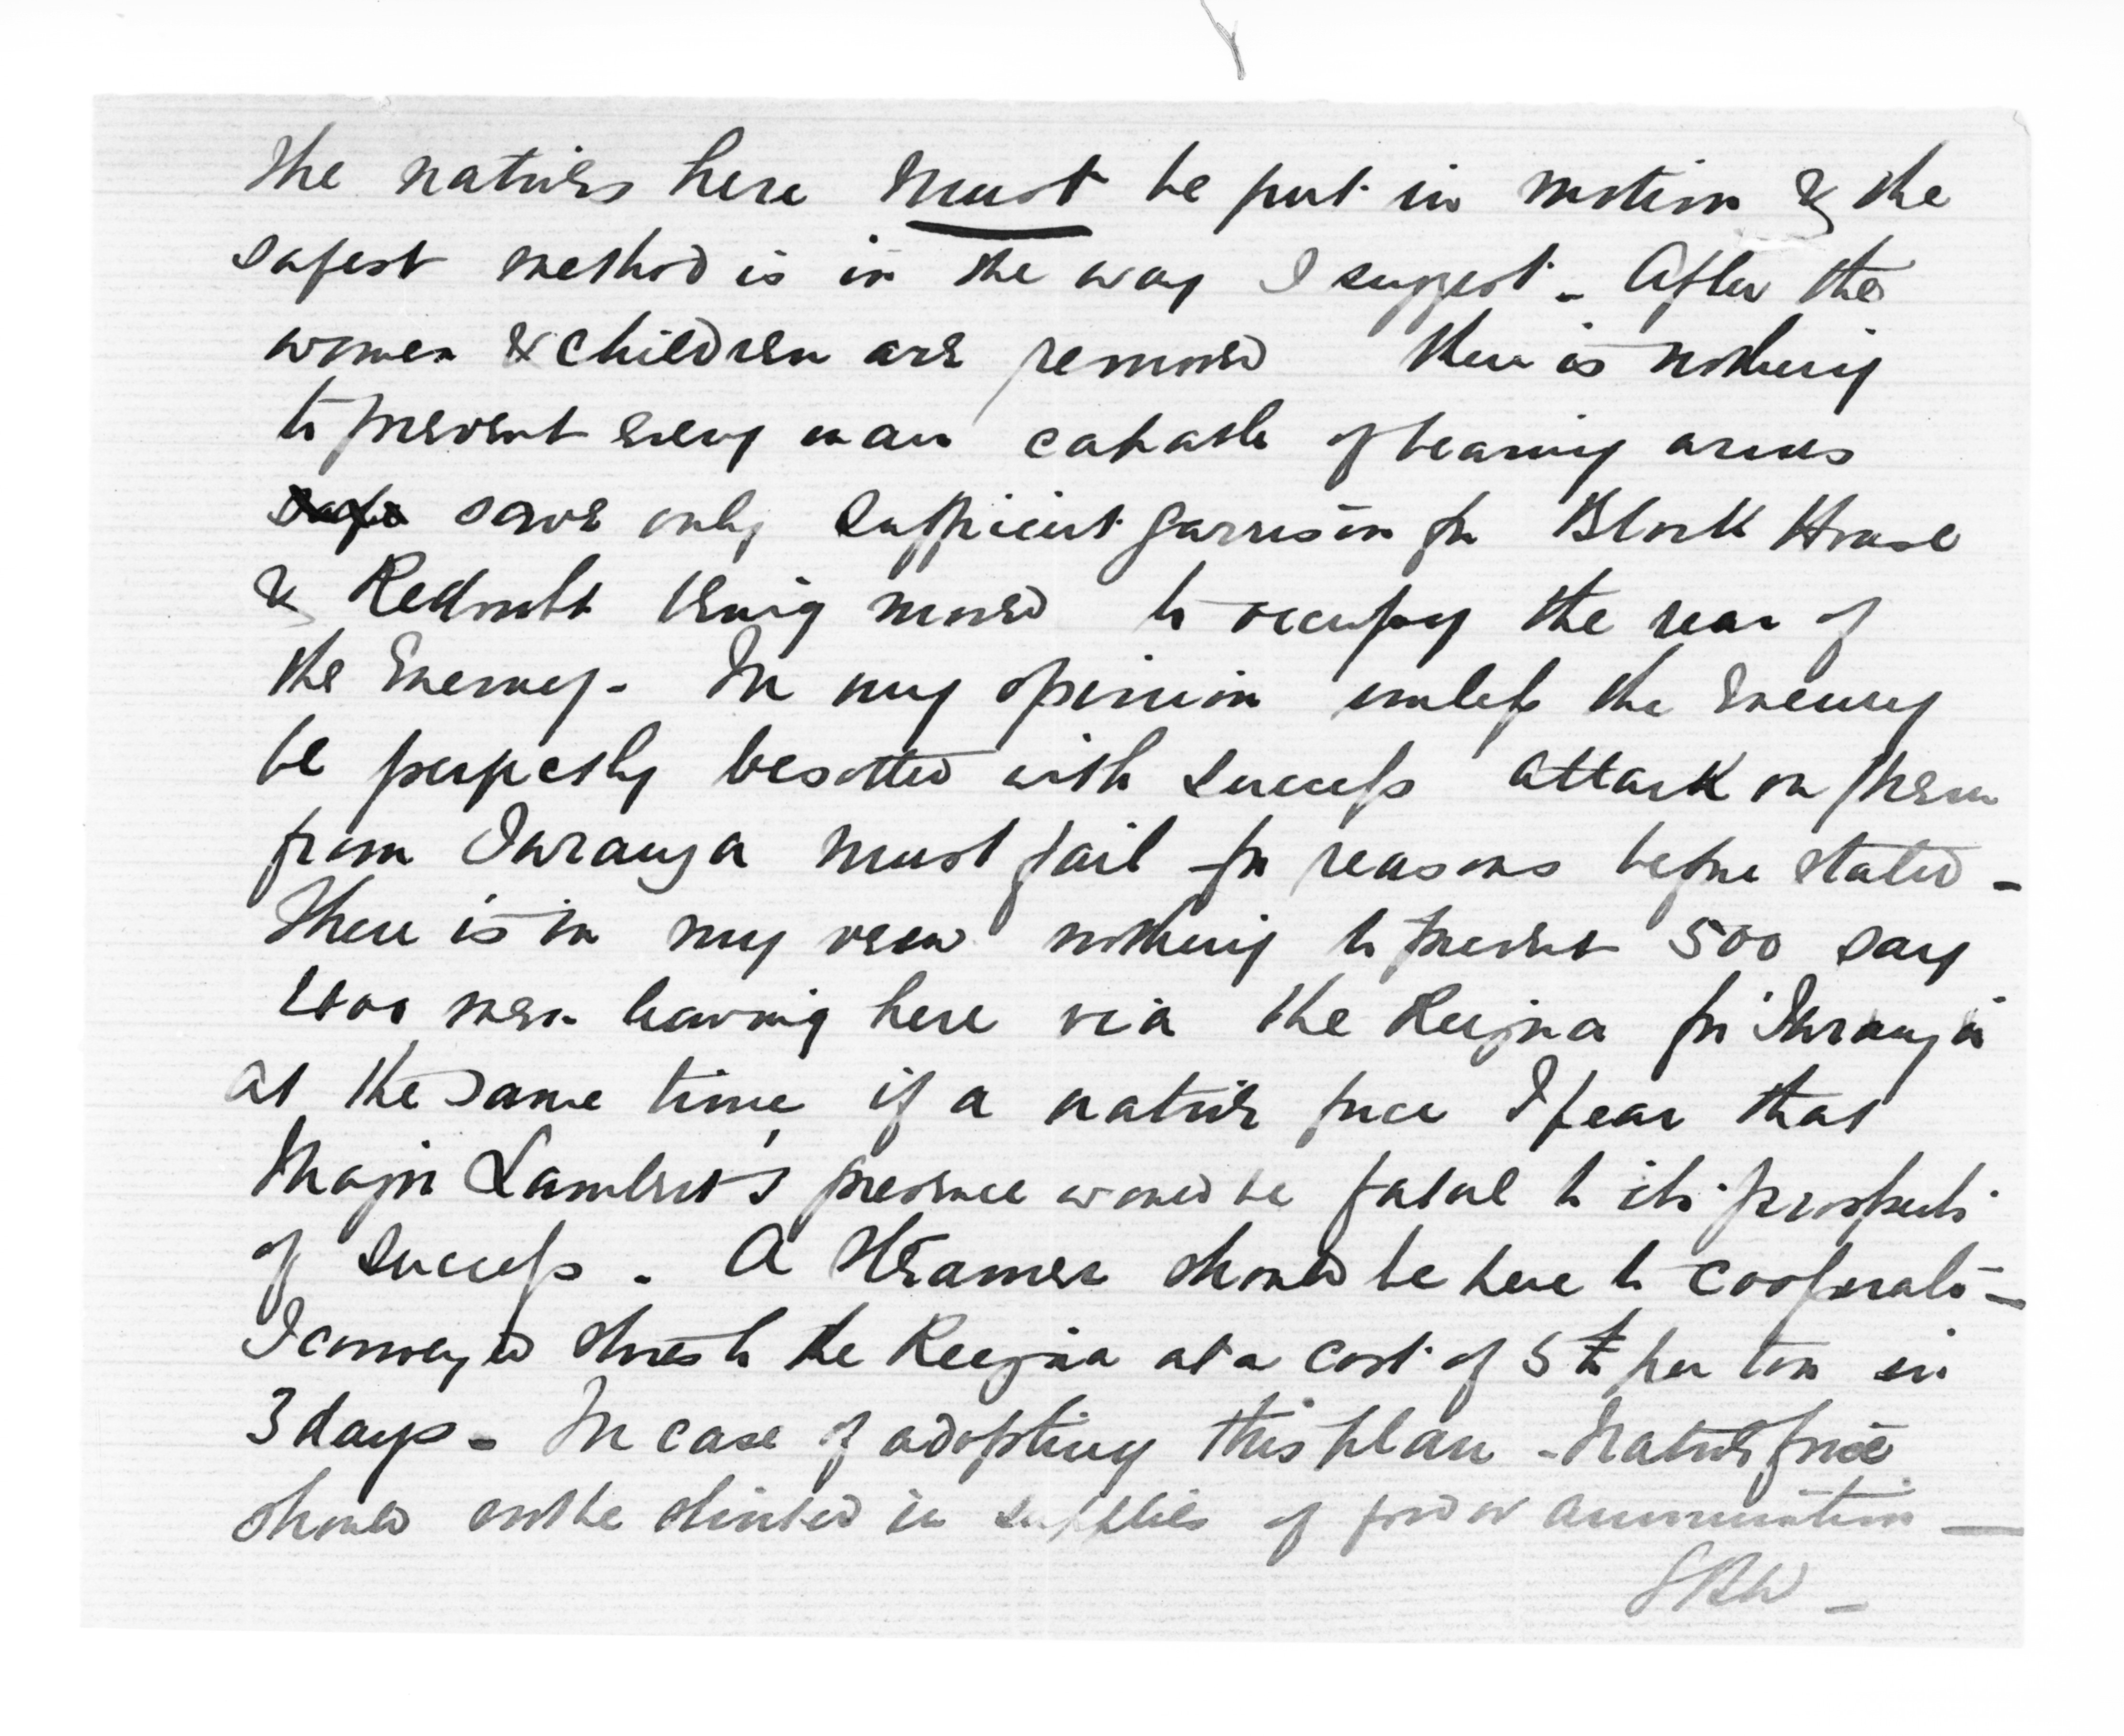 The natives here must be put in motion & the
safest method is in the way I suggest - After the
women & children are removed there is nothing
to prevent every man capable of bearing arms
save only sufficient garrison for Block House
& Redoubt being moved to occupy the rear of
the Enemy - In my opinion unless the Enemy
be perfectly besotted with success attack on them
from Turanga must fail for reasons before stated -
There is in my view nothing to prevent 500 say
men leaving here via the Reinga for Turanga
at the same time if a native force I fear that
Major Lambert's presence would be fatal to its prospects
of success . A Steamer should be here to cooperate -
I conveyed stores to the Reinga at a cost of per ton in
3 days - In case of adopting this plan - Native force
should not be stinted in supplies of food or ammunition -